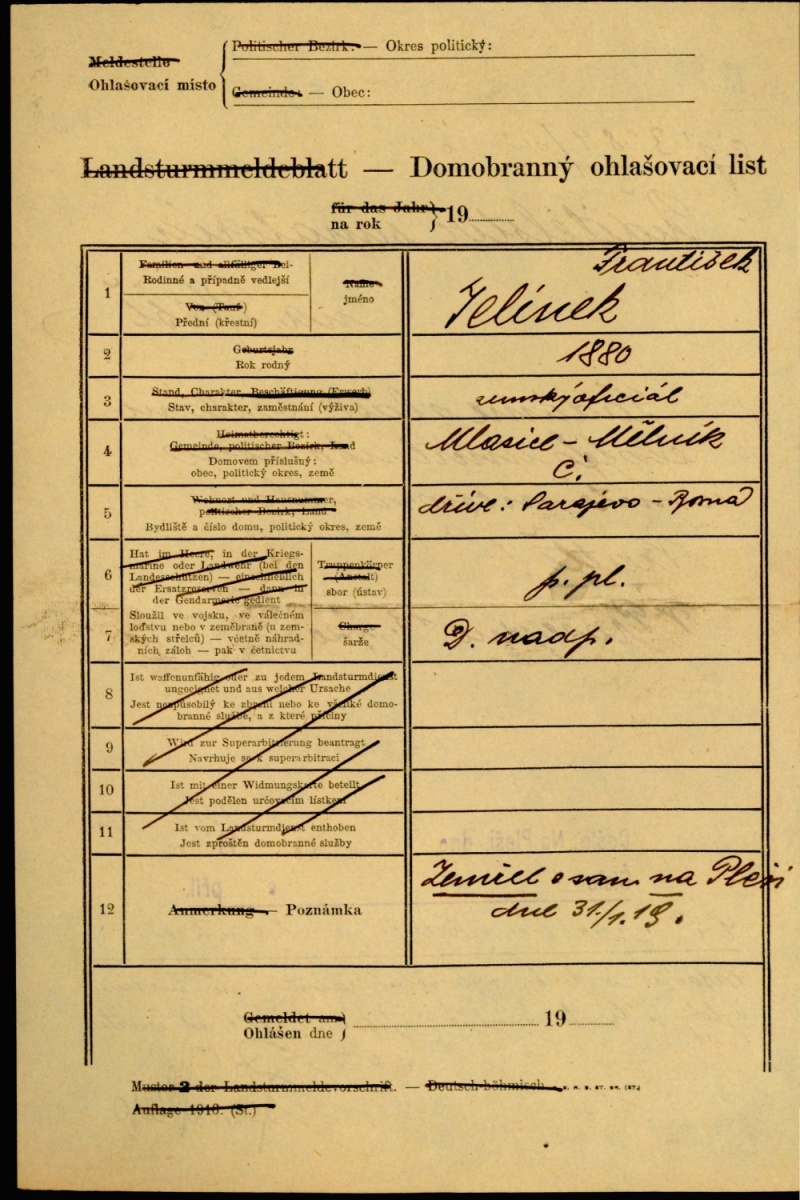 Politischer Bezirk: — Okres politický:
Meldestelle
Ohlašovací místo
Gemeinde: — Obec:
Landsturmmeldeblatt — Domobranný ohlašovací list
für das Jahr
na rok 19
1
Familien- und allfälliger Bei-
Rodinné a případně vedlejší
Vor- (Tauf-)
Přední (křestní)
Name
jméno
František
Jelínek
2
Geburtsjahr
Rok rodný
1880
3
Stand, Charakter, Beschäftigung (Erwerb)
Stav, charakter, zaměstnání (výživa)
zemský oficiál
4
Heimatberechtigt:
Gemeinde, politischer Bezirk, Land
Domovem příslušný:
obec, politický okres, země
Mlasice – Mělník
Č.
5
Wohnort und Hausnummer,
politischer Bezirk, Land
Bydliště a číslo domu, politický okres, země
dříve: Sarajevo – Bosna
6
Hat im Heere, in der Kriegs-
marine oder Landwehr (bei den
Landesschützen) — einschließlich
der Ersatzreserven — dann in
der Gendarmerie gedient
Truppenkörper
(Anstalt)
sbor (ústav)
p. pl.
7
Sloužil ve vojsku, ve válečném
loďstvu nebo v zeměbraně (u zem-
ských střelců) — včetně náhrad-
ních záloh — pak v četnictvu
Charge
šarže
D. nadp.
8
Ist waffenunfähig oder zu jedem Landsturmdienst
ungeeignet und aus welcher Ursache
Jest nespůsobilý ke zbrani nebo ke všeliké domo-
branné službě, a z které příčiny
9
Wird zur Superarbitrierung beantragt
Navrhuje se k superarbitraci
10
Ist mit einer Widmungskarte beteilt
Jest podělen určovacím lístkem
11
Ist vom Landsturmdienst enthoben
Jest zproštěn domobranné služby
12
Anmerkung — Poznámka
Zemřel v san. na Pleši
dne 31./1.19.
Gemeldet am
Ohlášen dne 19
Muster 2 der Landsturmmeldevorschrift. — Deutsch-böhmisch.
Auflage 1910. (St.)